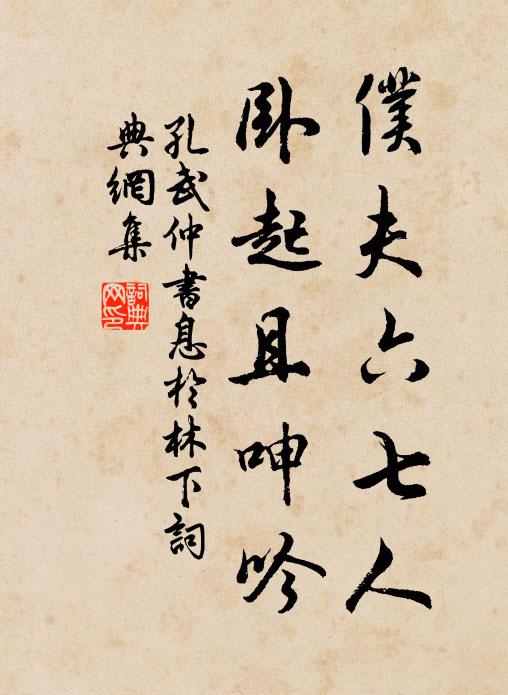 僕夫六七人
臥起且呻吟
孔武仲書息於林下詞
典網集
詞典
网印